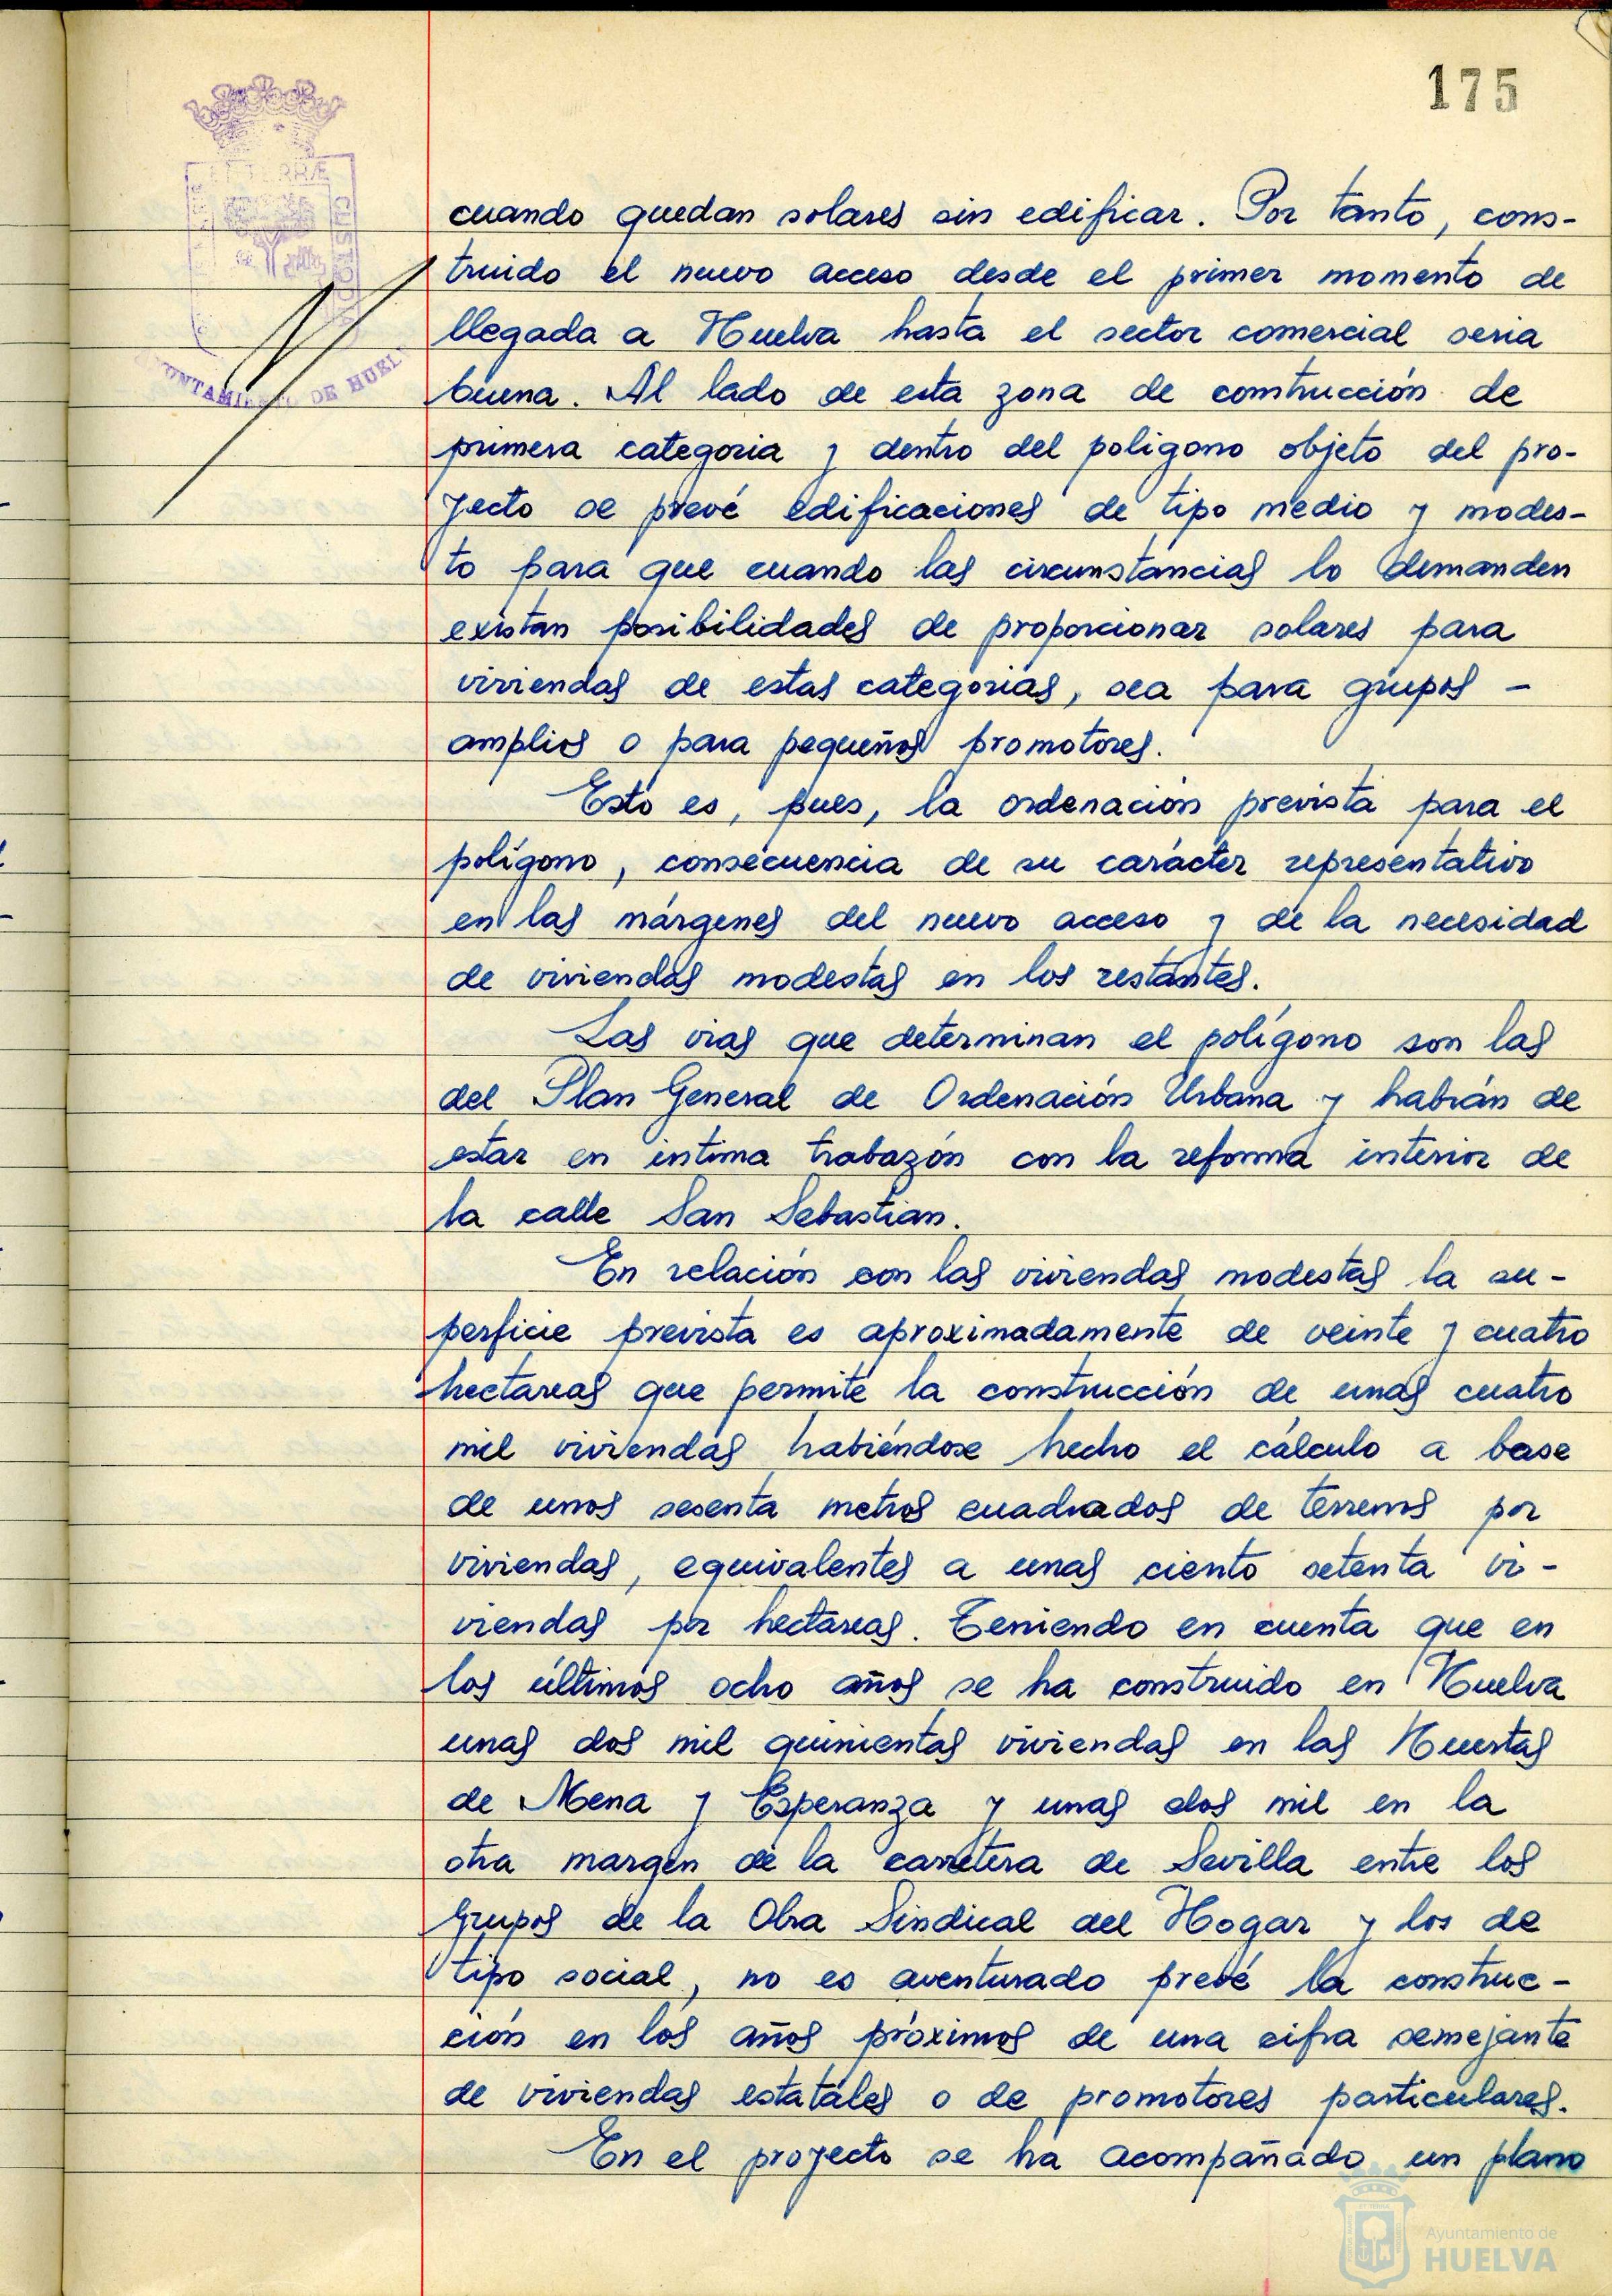 175
ET TERRÆ
CUSTODIA
AYUNTAMIENTO DE HUELVA
cuando quedan solares sin edificar. Por tanto, cons-
truido el nuevo acceso desde el primer momento de
llegada a Huelva hasta el sector comercial seria
buena. Al lado de esta zona de construcción de
primera categoria y dentro del poligono objeto del pro-
yecto se prevé edificaciones de tipo medio y modes-
to para que cuando las circunstancias lo demanden
existan posibilidades de proporcionar solares para
viviendas de estas categorias, sea para grupos -
amplios o para pequeños promotores.
Esto es, pues, la ordenación prevista para el
polígono, consecuencia de su carácter representativo
en las márgenes del nuevo acceso y de la necesidad
de viviendas modestas en los restantes.
Las vias que determinan el polígono son las
del Plan General de Ordenación Urbana y habrán de
estar en intima trabazón con la reforma interior de
la calle San Sebastian.
En relación con las viviendas modestas la su-
perficie prevista es aproximadamente de veinte y cuatro
hectareas que permite la construcción de unas cuatro
mil viviendas habiéndose hecho el cálculo a base
de unos sesenta metros cuadrados de terrenos por
viviendas, equivalentes a unas ciento setenta vi-
viendas por hectareas. Teniendo en cuenta que en
los últimos ocho años se ha construido en Huelva
unas dos mil quinientas viviendas en las Huertas
de Mena y Esperanza y unas dos mil en la
otra margen de la carretera de Sevilla entre los
Grupos de la Obra Sindical del Hogar y los de
tipo social, no es aventurado prevé la construc-
ción en los años próximos de una cifra semejante
de viviendas estatales o de promotores particulares.
En el proyecto se ha acompañado un plano
Ayuntamiento de
HUELVA